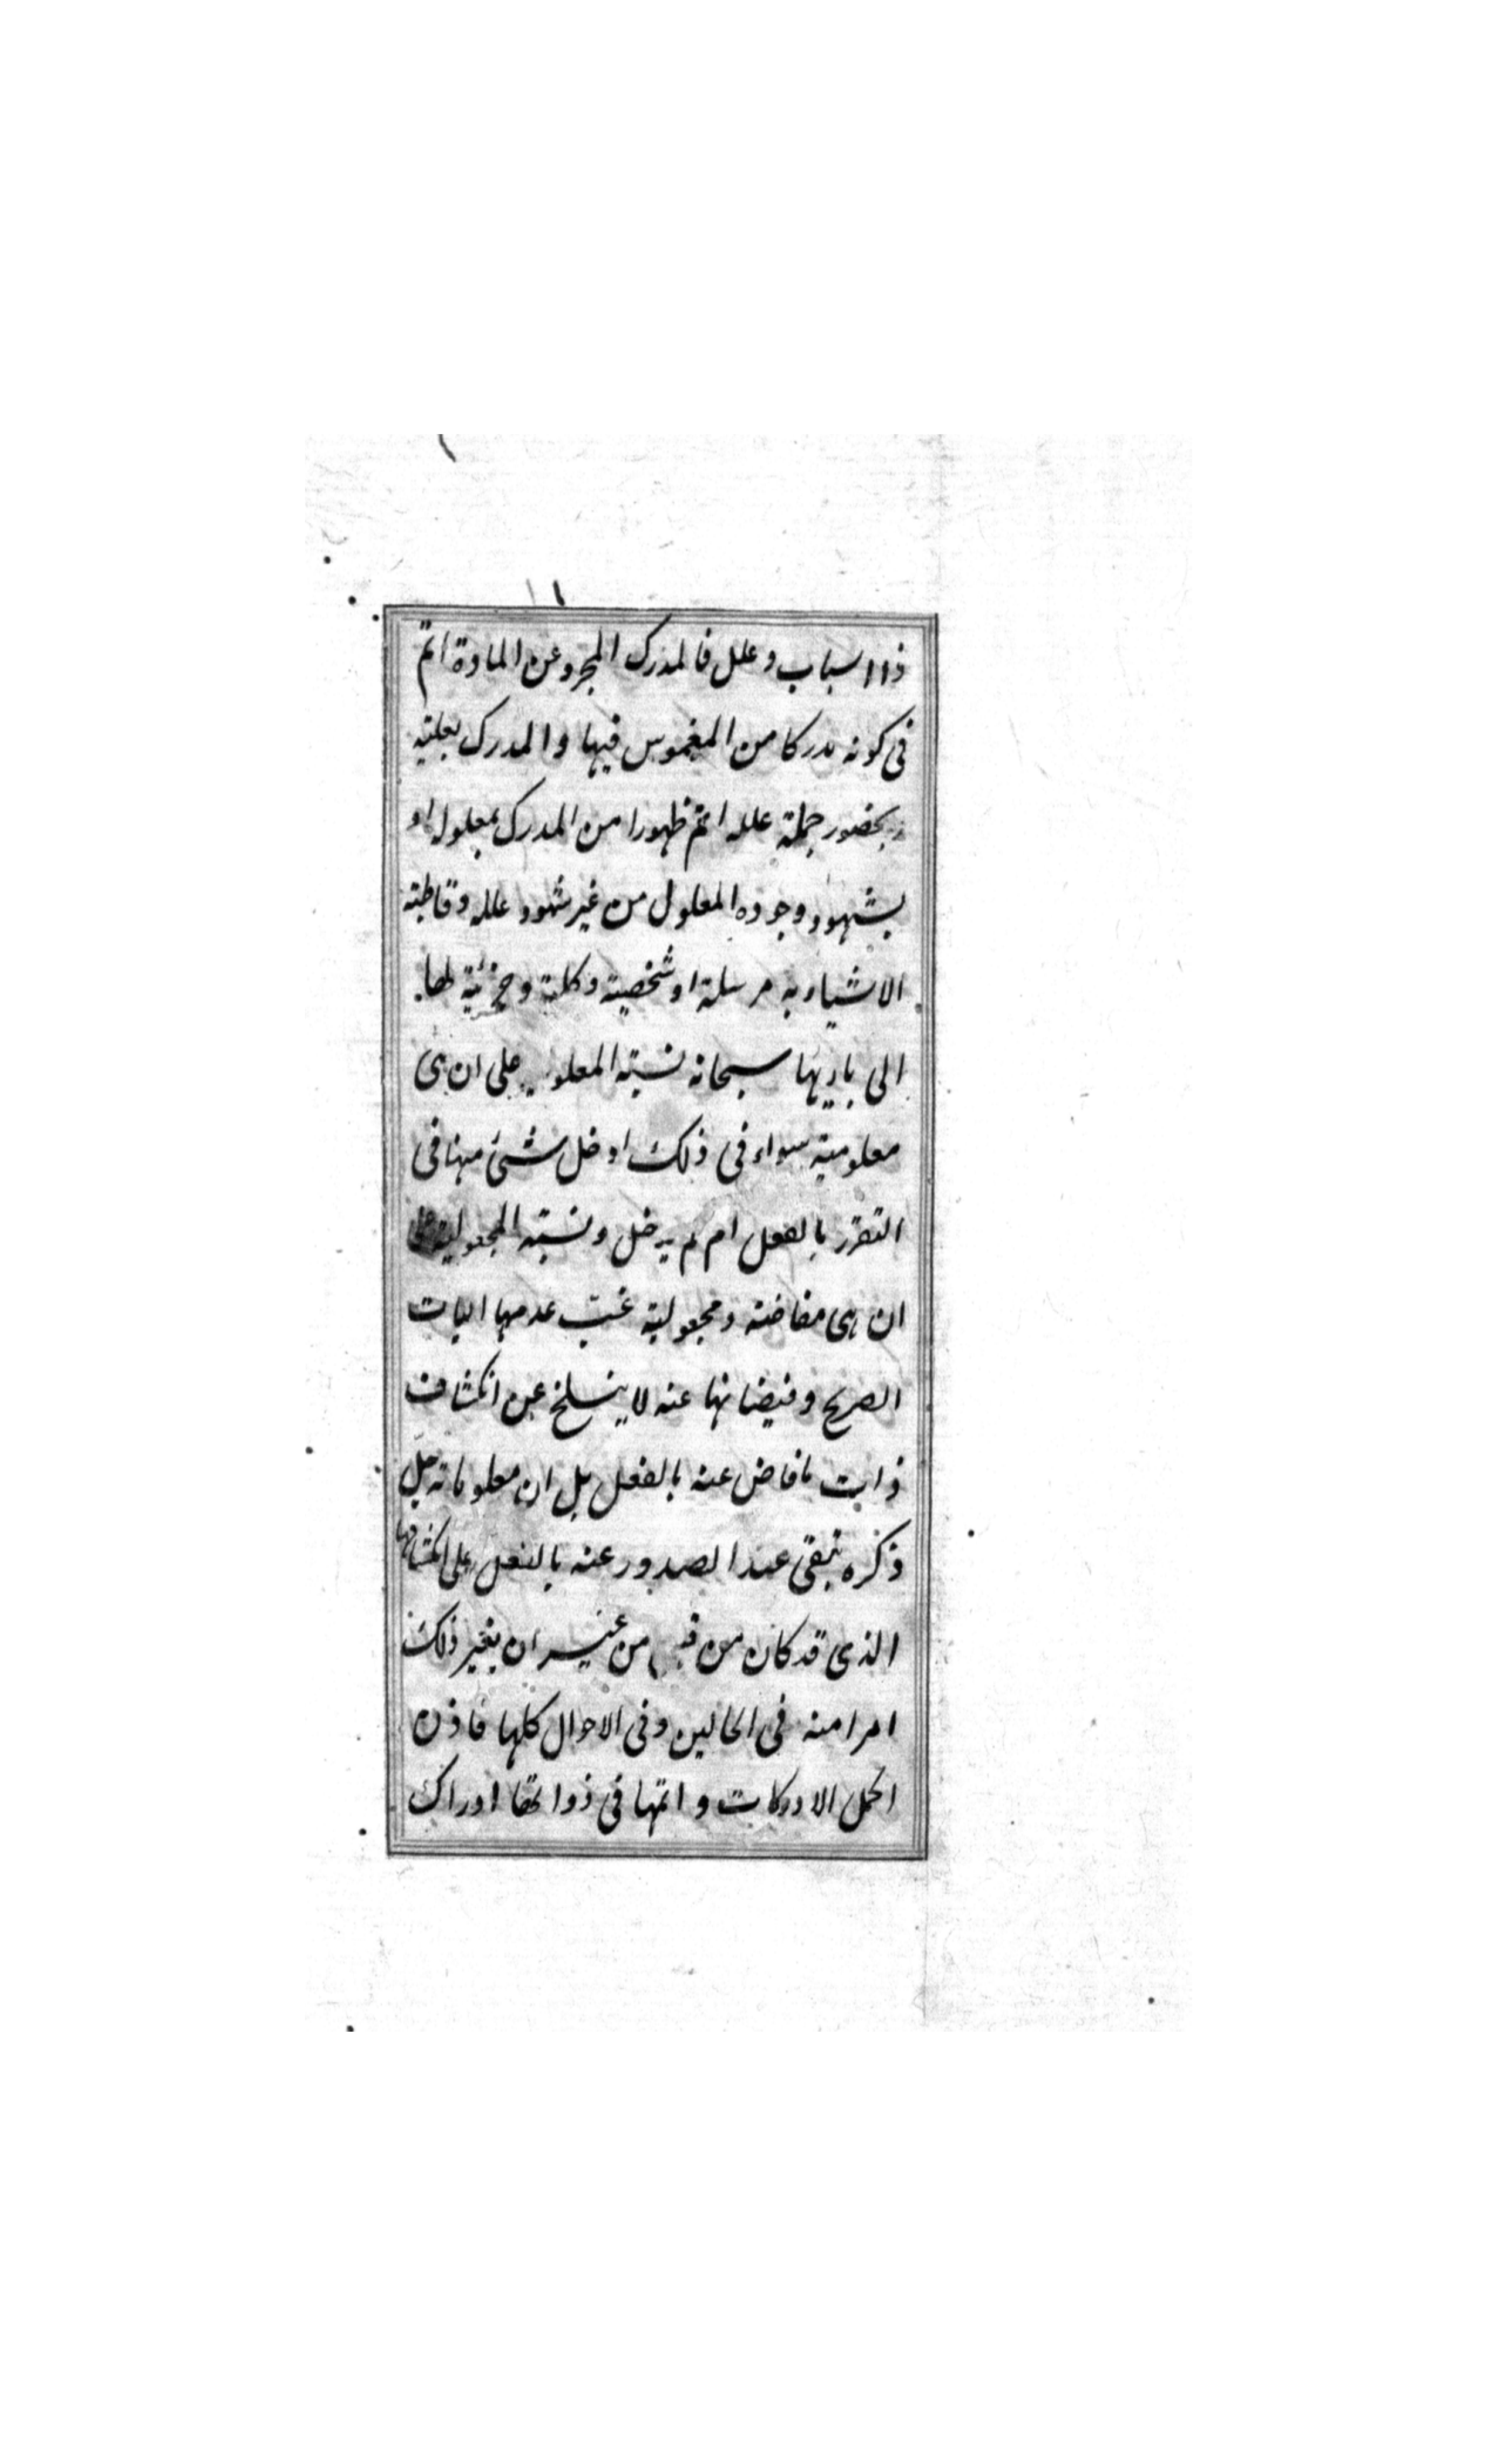 ذا اسباب وعلل فالمدرك المجرد عن المادة اتم
فى كونه مدركا من المغموس فيها والمدرك بعليته
بحضور جملة علله اتم ظهورا من المدرك بمعلوله او
بشهود وجوده المعلول من غير شهود علله وقاطبة
الاشياء به مرسلة او شخصية وكلية وجزئية لها
الى باريها سبحانه نسبة على ان هى
معلومية سواء فى ذلك ادخل شىء منها فى
التقرر بالفعل ام لم يدخل ونسبة المجعولية على
ان هى مفاضة ومجعولية غب عدمها البات
الصريح وفيضانها عنه لا ينسلخ عن انكشاف
ذابت مافاض عنه بالفعل بل ان معلوماته جل
ذكره تبقى عند الصدور عنه بالفعل على انكشافها
الذى قد كان من قبل من غير ان يغير ذلك
امرا منه فى الحالين وفى الاحوال كلها فاذن
اكمل الادركات واتمها فى ذواتها ادراك